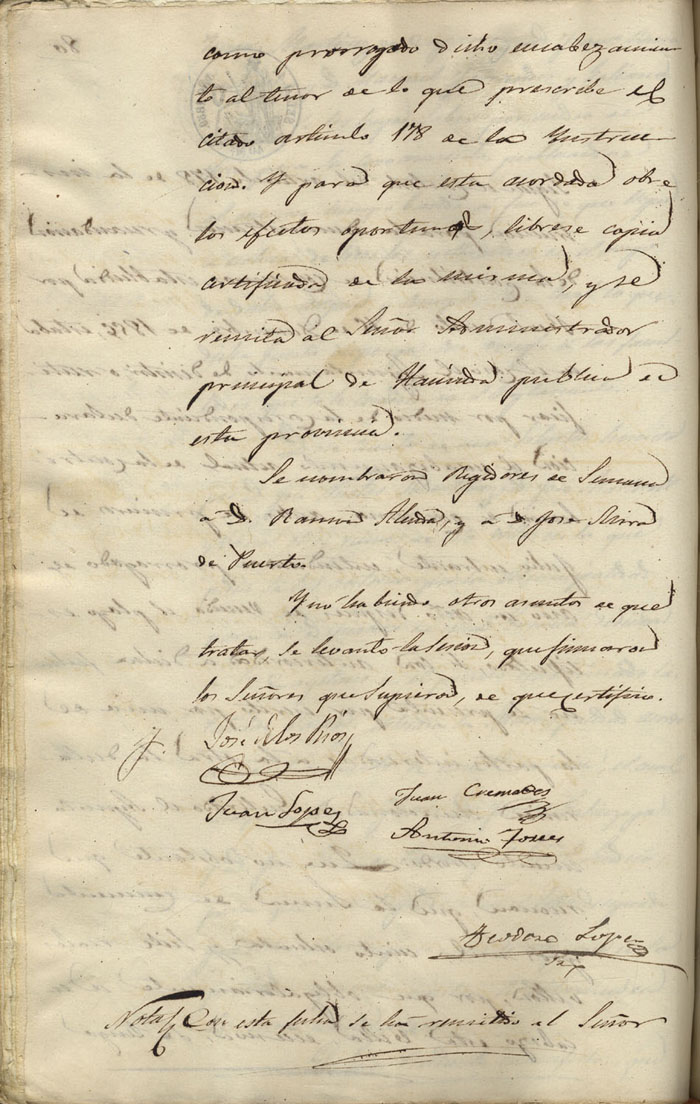 como prorogado dicho encabezamien-
to al tenor de lo que prescribe el
citado articulo 178 de la Ynstruc-
cion. Y para que esta acordada obre
los efectos oportunos, librese copia
certificada de la misma, y se
remita al Señor Administrador
principal de Hacienda publica de
esta provincia.
Se nombraron Regidores de Semana
a D. Ramon y a D. Jose
de Puerto.
Y no habiendo otros asuntos de que
tratar se levantó la sesion, que firmaron
los Señores que supieron, de que certifico.
José de los Rios
Juan Lopez
Juan Cremades
Antonio
Teodoro Lopez
Nota Con esta fecha se ha remitido al Señor